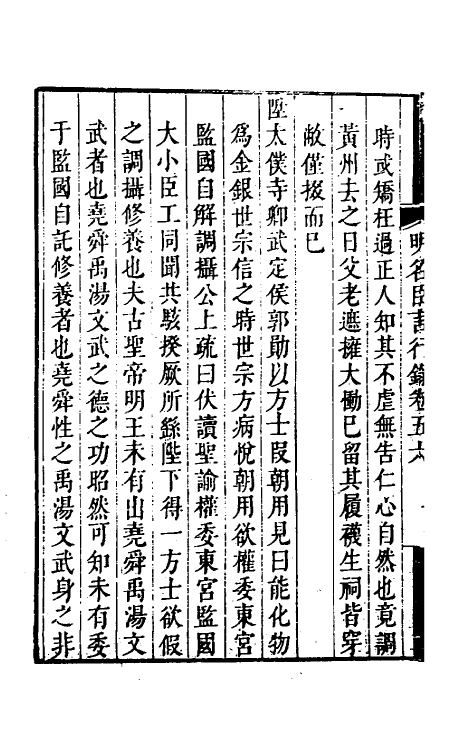 明名臣言行錄卷五十六
時或矯枉過正人知其不虐無告仁心自然也竟調
黃州去之日父老遮擁大慟已留其履襪生祠皆穿
敝僅掇而已
陞太僕寺卿武定侯郭勛以方士段朝用見曰能化物
為金銀世宗信之時世宗方病悅朝用欲權委東宮
監國自解調攝公上疏曰伏讀聖諭權委東宮監國
大小臣工同聞共駭揆厥所繇陛下得一方士欲假
之調攝修養也夫古聖帝明王未有出堯舜禹湯文
武者也堯舜禹湯文武之德之功昭然可知未有委
于監國自託修養者也堯舜性之禹湯文武身之非